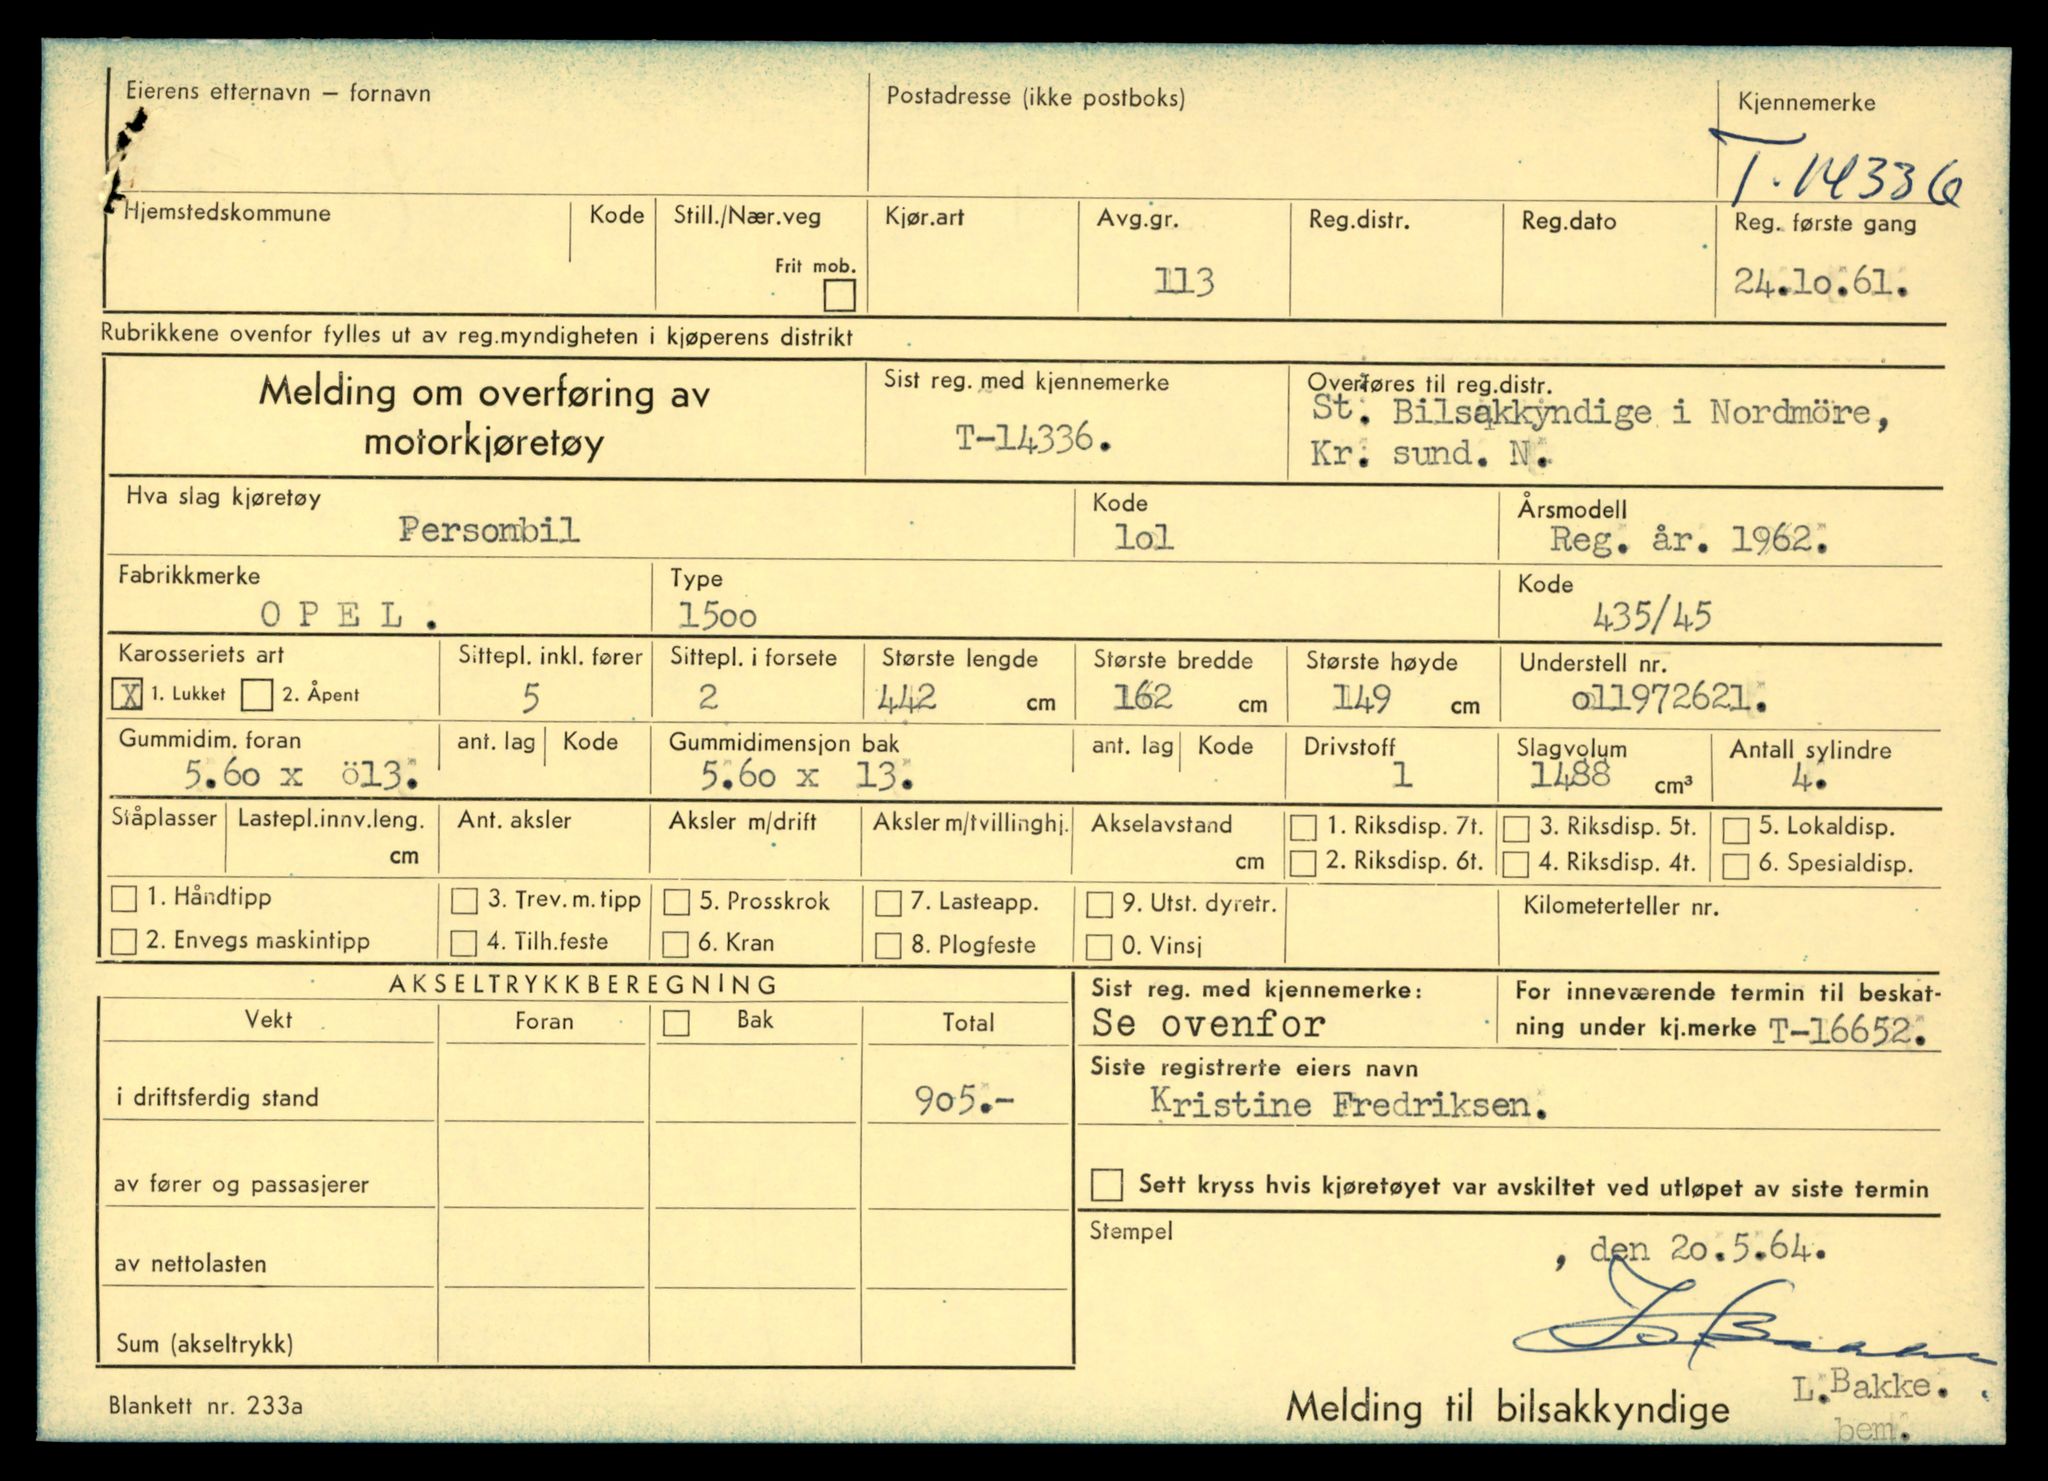 Eierens etternavn – fornavn
Postadresse (ikke postboks)
Kjennemerke
T. 14336
Hjemstedskommune
Kode
Still./Nær.veg
Frit mob.
Kjør.art
Avg.gr.
113
Reg.distr.
Reg.dato
Reg. første gang
24.lo.61.
Rubrikkene ovenfor fylles ut av reg.myndigheten i kjøperens distrikt
Melding om overføring av
motorkjøretøy
Sist reg. med kjennemerke
T-14336.
Overføres til reg.distr.
St. Bilsakkyndige i Nordmöre,
Kr. sund. N.
Hva slag kjøretøy
Personbil
Kode
lol
Årsmodell
Reg. år. 1962.
Fabrikkmerke
O P E L .
Type
15oo
Kode
435/45
Karosseriets art
X 1. Lukket 2. Åpent
Sittepl. inkl. fører
5
Sittepl. i forsete
2
Største lengde
442 cm
Største bredde
162 cm
Største høyde
149 cm
Understell nr.
o11972621.
Gummidim. foran
5.6o x ö13.
ant. lag
Kode
Gummidimensjon bak
5.6o x 13.
ant. lag
Kode
Drivstoff
1
Slagvolum
1488 cm³
Antall sylindre
4.
Ståplasser
Lastepl.innv.leng.
cm
Ant. aksler
Aksler m/drift
Aksler m/tvillinghj.
Akselavstand
cm
1. Riksdisp. 7t.
2. Riksdisp. 6t.
3. Riksdisp. 5t.
4. Riksdisp. 4t.
5. Lokaldisp.
6. Spesialdisp.
1. Håndtipp
2. Envegs maskintipp
3. Trev. m. tipp
4. Tilh.feste
5. Prosskrok
6. Kran
7. Lasteapp.
8. Plogfeste
9. Utst. dyretr.
0. Vinsj
Kilometerteller nr.
AKSELTRYKKBEREGNING
Vekt
Foran
Bak
Total
i driftsferdig stand
9o5.-
av fører og passasjerer
av nettolasten
Sum (akseltrykk)
Sist reg. med kjennemerke:
Se ovenfor
For inneværende termin til beskat-
ning under kj.merke T-16652.
Siste registrerte eiers navn
Kristine Fredriksen.
Sett kryss hvis kjøretøyet var avskiltet ved utløpet av siste termin
Stempel
, den 2o.5.64.
L.Bakke.
bem.
Blankett nr. 233a
Melding til bilsakkyndige